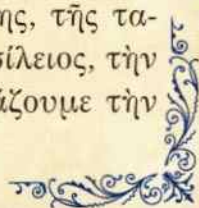 ης, τῆς τα-
σίλειος, τὴν
άζουμε τὴν